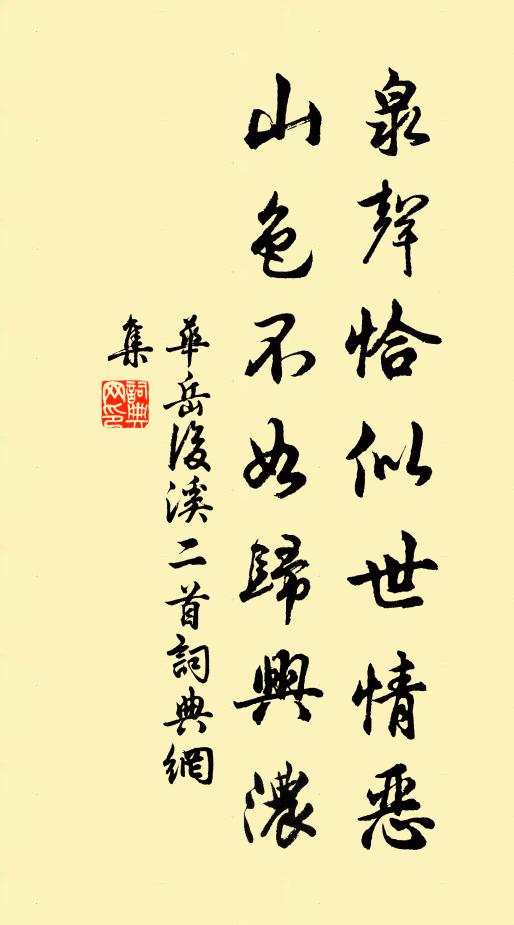 泉聲恰似世情惡
山色不如歸興濃
華岳後溪二首詞典網
集
詞典網印